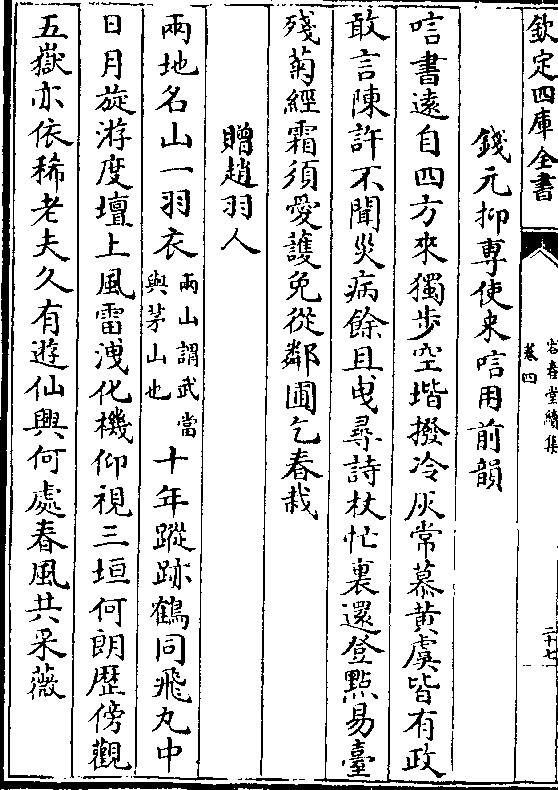 欽定四庫全書
容春堂續集
卷四
二十七
錢元抑專使来唁用前韻
唁書遠自四方來獨步空堦撥冷灰常慕黄虞皆有政
敢言陳許不聞災病餘且曵尋詩杖忙裏還登㸃易臺
殘菊經霜須愛䕶免從鄰圃乞春栽
贈趙羽人
兩地名山一羽衣兩山謂武當與茅山也十年蹤跡鶴同飛丸中
日月旋游度壇上風雷洩化機仰視三垣何朗歴傍觀
五嶽亦依稀老夫久有遊仙興何處春風共采薇